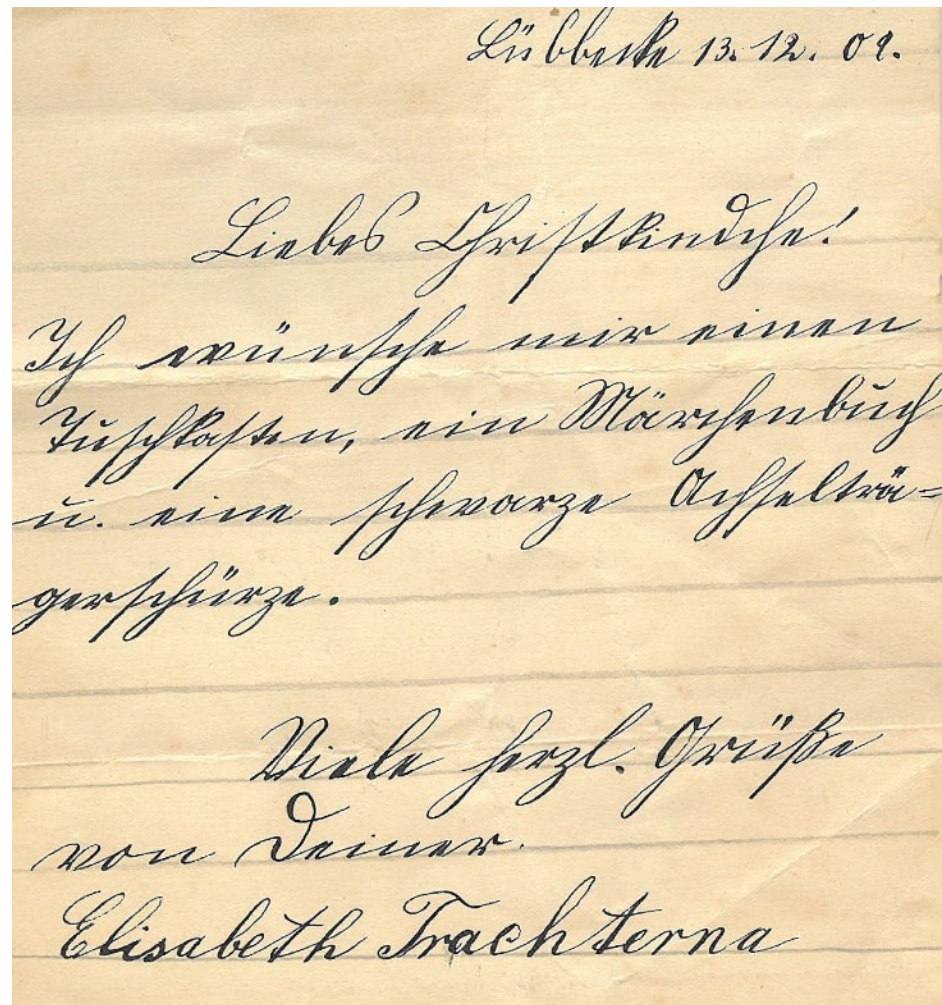 Lübbecke 13. 12. 09.
Liebes Christkindche!
Ich wünsche mir einen
Tuschkasten, ein Märchenbuch
u. eine schwarze Achselträ=
gerschürze.
Viele herzl. Grüße
von Deiner.
Elisabeth Trachterna